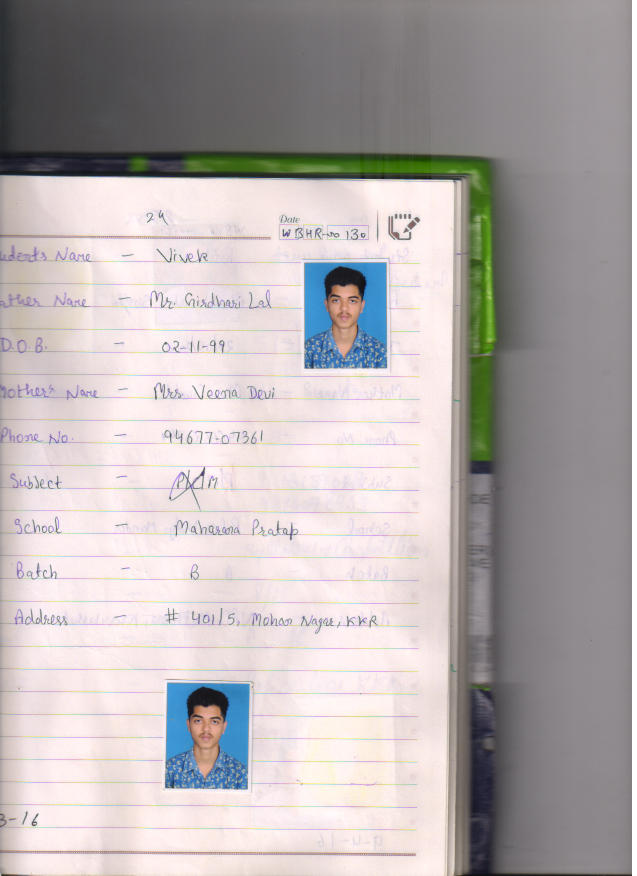 24
Date
WBHR-no 130
udents Name - Vivek
ather Name - Mr. Girdhari Lal
D.O.B. - 02-11-99
Mother's Name - Mrs Veena Devi
Phone No. - 94677-07361
Subject - M
School - Maharana Pratap
Batch - B
Address - # 401/5, Mohan Nagar, KKR
3-16